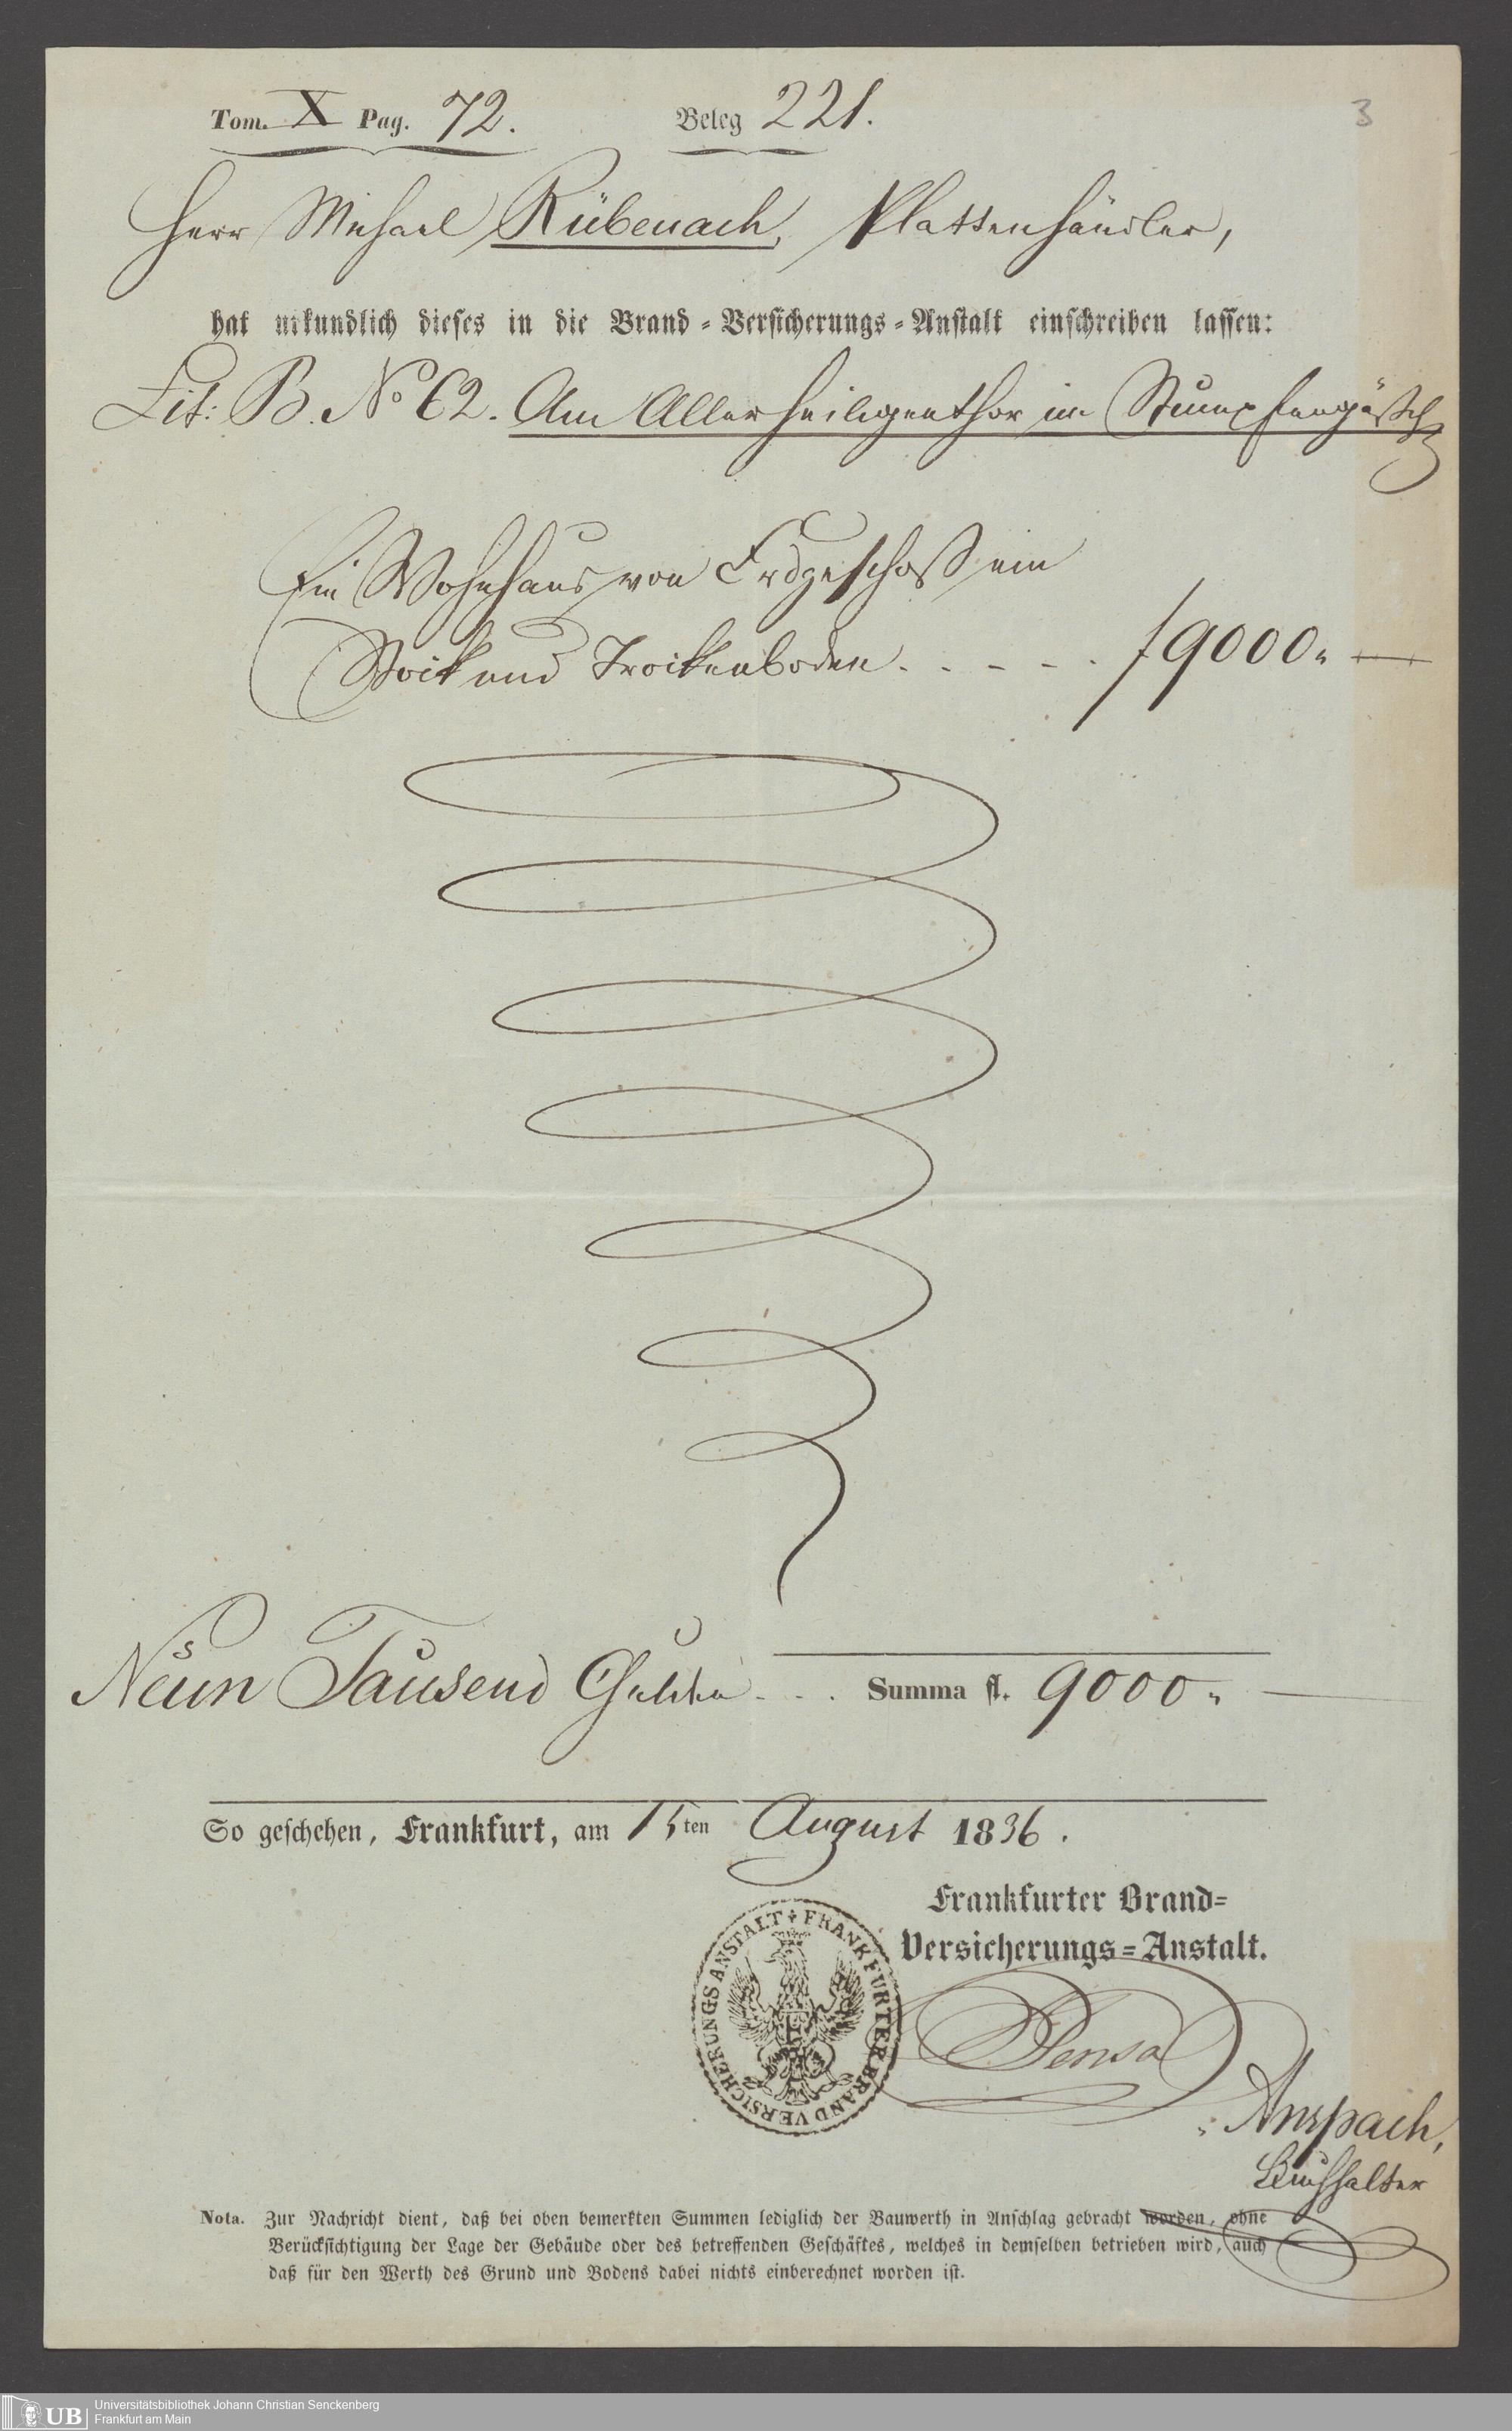 Tom. X Pag. 72. Beleg 221.
3
Herr Michael Rübenach, Plattenhändler,
hat urkundlich dieses in die Brand-Versicherungs-Anstalt einschreiben lassen:
Lit: B. No 62. Am Allerheiligenthor im Stumpfengäßch
Ein Wohnhaus von Erdgeschoß ein
Stock und Trockenboden . . - - . f 9000. —
Neun Tausend Gulden - . . Summa fl. 9000. —
So geschehen, Frankfurt, am 15ten August 1836.
Frankfurter Brand-
Versicherungs-Anstalt.
FRANKFURTER BRAND VERSICHERUNGS ANSTALT
Anspach,
Buchhalter
Nota. Zur Nachricht dient, daß bei oben bemerkten Summen lediglich der Bauwerth in Anschlag gebracht worden, ohne
Berücksichtigung der Lage der Gebäude oder des betreffenden Geschäftes, welches in demselben betrieben wird, auch
daß für den Werth des Grund und Bodens dabei nichts einberechnet worden ist.
UB Universitätsbibliothek Johann Christian Senckenberg
Frankfurt am Main